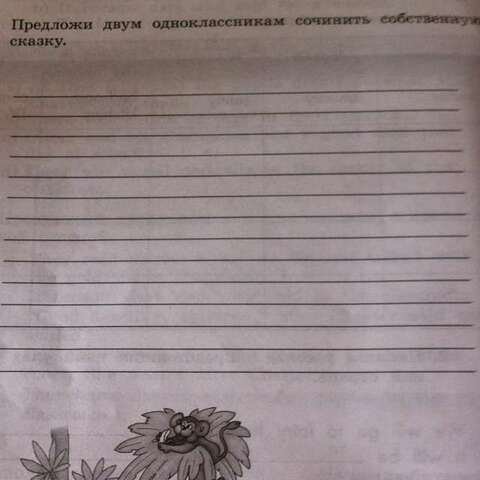 Предложи двум одноклассникам сочинить собственную
сказку.